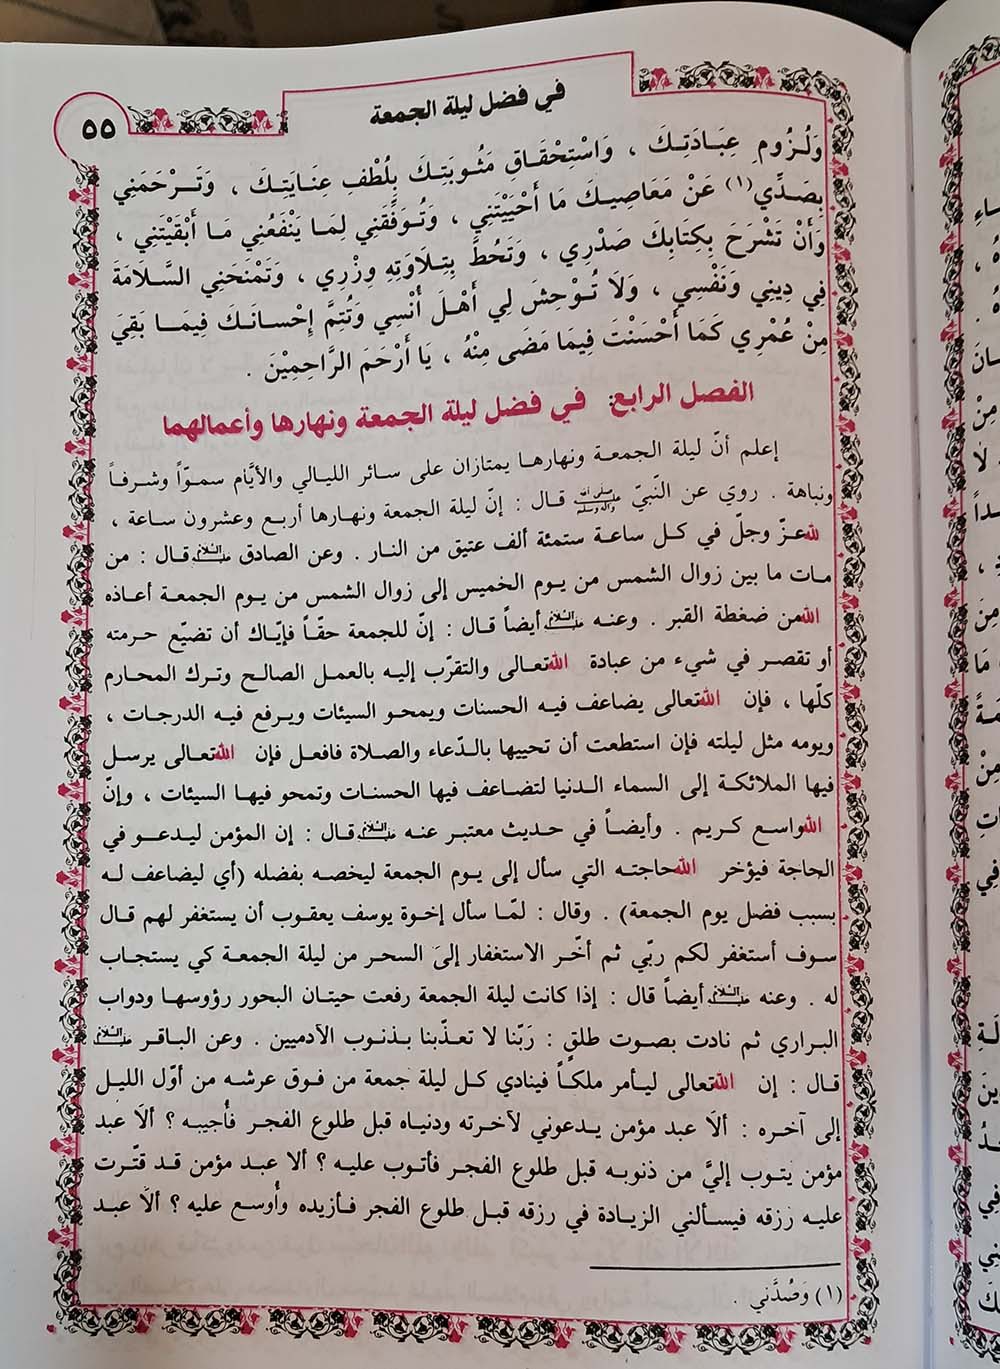 في فضل ليلة الجمعة
٥٥
وَلُزُومِ عِبَادَتِكَ ، وَاسْتِحْقَاقِ مَثُوبَتِكَ بِلُطْفِ عِنَايَتِكَ ، وَتَرْحَمَنِي
بِصَدِّي(١) عَنْ مَعَاصِيكَ مَا أَحْيَيْتَنِي ، وَتُوَفِّقَنِي لِمَا يَنْفَعُنِي مَا أَبْقَيْتَنِي ،
وَأَنْ تَشْرَحَ بِكِتَابِكَ صَدْرِي ، وَتَحُطَّ بِتِلَاوَتِهِ وِزْرِي ، وَتَمْنَحَنِي السَّلامَةَ
فِي دِينِي وَنَفْسِي ، وَلَا تُوْحِشَ لِي أَهْلَ أُنْسِي وَتُتِمَّ إِحْسَانَكَ فِيمَا بَقِيَ
مِنْ عُمْرِي كَمَا أَحْسَنْتَ فِيمَا مَضَى مِنْهُ ، يَا أَرْحَمَ الرَّاحِمِيْنَ .
الفصل الرابع: في فضل ليلة الجمعة ونهارها وأعمالهما
إعلم أنّ ليلة الجمعة ونهارها يمتازان على سائر الليالي والأيَّام سموّاً وشرفاً
ونباهة . روي عن النَبيّ صلى الله عليه وآله وسلم قال : إنّ ليلة الجمعة ونهارها أربع وعشرون ساعة ،
لله عزّ وجلّ في كل ساعة ستمئة ألف عتيق من النار . وعن الصادق عليه السلام قال : من
مات ما بين زوال الشمس من يوم الخميس إلى زوال الشمس من يوم الجمعة أعاذه
الله من ضغطة القبر . وعنه عليه السلام أيضاً قال : إنّ للجمعة حقّاً فإيّاك أن تضيّع حرمته
أو تقصر في شيء من عبادة الله تعالى والتقرّب إليه بالعمل الصالح وترك المحارم
كلّها ، فإن الله تعالى يضاعف فيه الحسنات ويمحو السيئات ويرفع فيه الدرجات ،
ويومه مثل ليلته فإن استطعت أن تحييها بالدّعاء والصلاة فافعل فإن الله تعالى يرسل
فيها الملائكة إلى السماء الدنيا لتضاعف فيها الحسنات وتمحو فيها السيئات ، وإنّ
الله واسع كريم . وأيضاً في حديث معتبر عنه عليه السلام قال : إن المؤمن ليدعو في
الحاجة فيؤخر الله حاجته التي سأل إلى يوم الجمعة ليخصه بفضله (أي ليضاعف له
بسبب فضل يوم الجمعة) . وقال : لمّا سأل إخوة يوسف يعقوب أن يستغفر لهم قال
سوف أستغفر لكم ربّي ثم أخّر الاستغفار إلىَ السحر من ليلة الجمعة كي يستجاب
له . وعنه عليه السلام أيضاً قال : إذا كانت ليلة الجمعة رفعت حيتان البحور رؤوسها ودواب
البراري ثم نادت بصوت طلقٍ : رَبّنا لا تعذّبنا بذنوب الآدميين . وعن الباقر عليه السلام
قال : إن الله تعالى ليأمر ملكاً فينادي كل ليلة جمعة من فوق عرشه من أوّل الليل
إلى آخره : ألَا عبد مؤمن يدعوني لآخرته ودنياه قبل طلوع الفجر فأُجيبه ؟ ألَا عبد
مؤمن يَتوب إليَّ من ذنوبه قبل طلوع الفجر فأتوب عليه ؟ ألا عبد مؤمن قد قتّرت
عليه رزقه فيسألني الزيادة في رزقه قبل طلوع الفجر فأزيده وأُوسع عليه ؟ ألَا عبد
(١) وَصُدَّنِي .